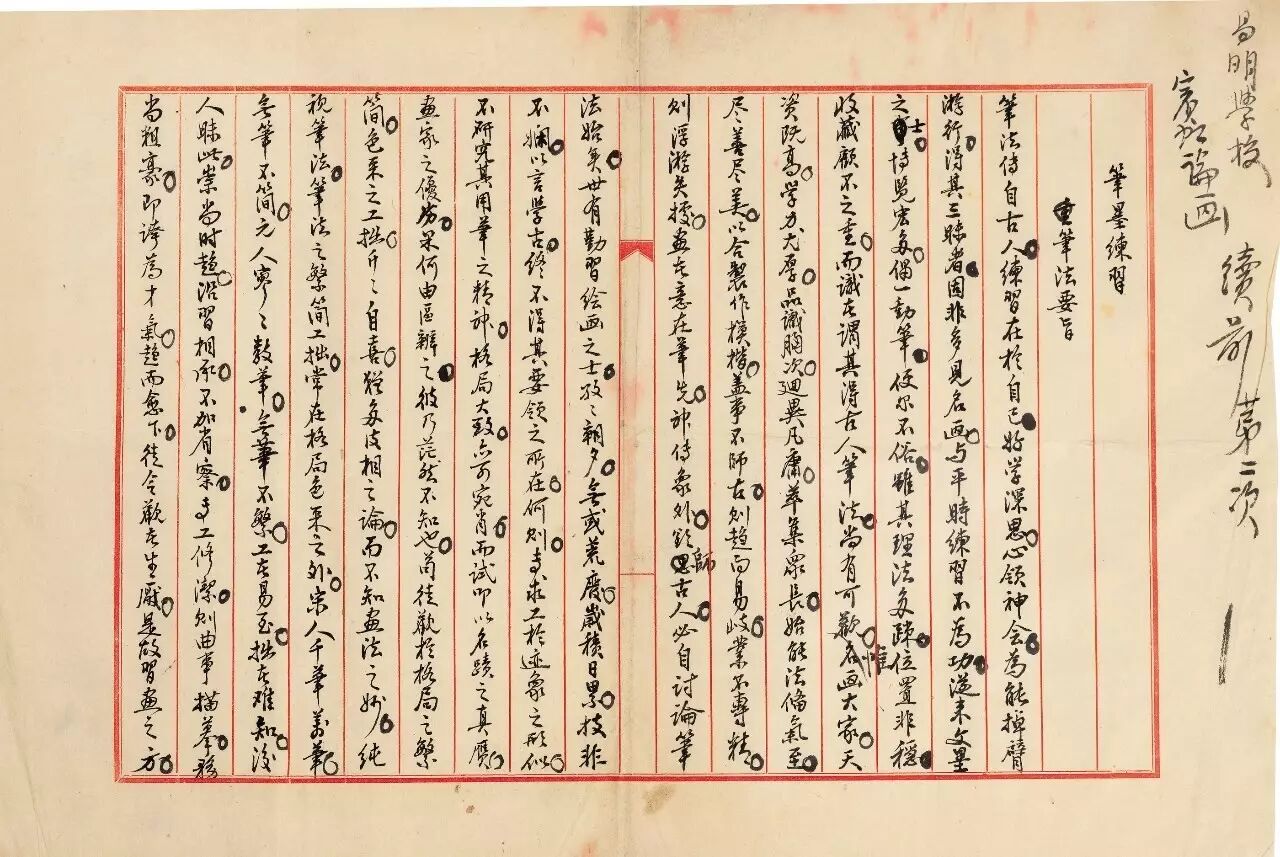 昌明學校
賓虹論画 續前 第二次
筆墨練習
重筆法要旨
筆法傳自古人練習在於自己好学深思心領神会為能掉臂
游行得其三昧者固非多見名画与平時練習不為功從来文墨
之士博覧宏多偶一動筆便尔不俗雖其理法多疎位置非穩
收藏顧不之重而識者謂其得古人筆法尚有可觀惟名画大家天
资既高学力尤厚品識胸次迥異凡庸萃集衆長始能法備氣至
尽善尽美以合製作模楷盖事不師古則趨向易歧業不專精
則浮游失據画者意在筆先神傳象外欲師古人必自討論筆
法始矣世有勤習绘画之士孜〻朝夕無或荒廢歲積日累技非
不嫻以言學古終不得其要領之所在何則専求工於迹象之形似
不研究其用筆之精神格局大致亦可宛肖而試叩以名蹟之真贋
画家之優劣果何由區辨之彼乃茫然不知也苟徒觀於格局之繁
简色采之工拙斤〻自喜猶多皮相之論而不知画法之妙純
視筆法筆法之繁简工拙常在格局色采之外宋人千筆万筆
無筆不简元人寥〻数筆無筆不繁工者易至拙者难知後
人昧此崇尚时趨沿習相承不加省察専工修潔則曲事描摹務
尚粗豪即誇為才氣趨而愈下徒令觀者生厭是故習画之方